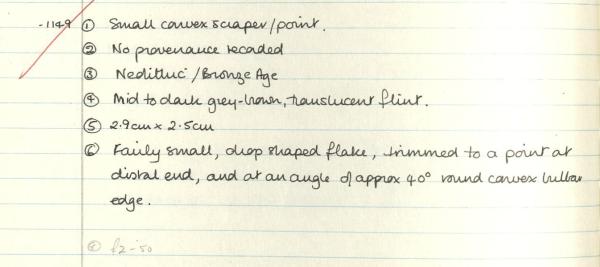 -1149 ① Small convex scraper/point.
② No provenance recorded
③ Neolithic/Bronze Age
④ Mid to dark grey-brown, translucent flint.
⑤ 2.9cm x 2.5cm
⑥ Fairly small, drop shaped flake, trimmed to a point at
distal end, and at an angle of approx 40° round convex bulbar
edge.
£2-50